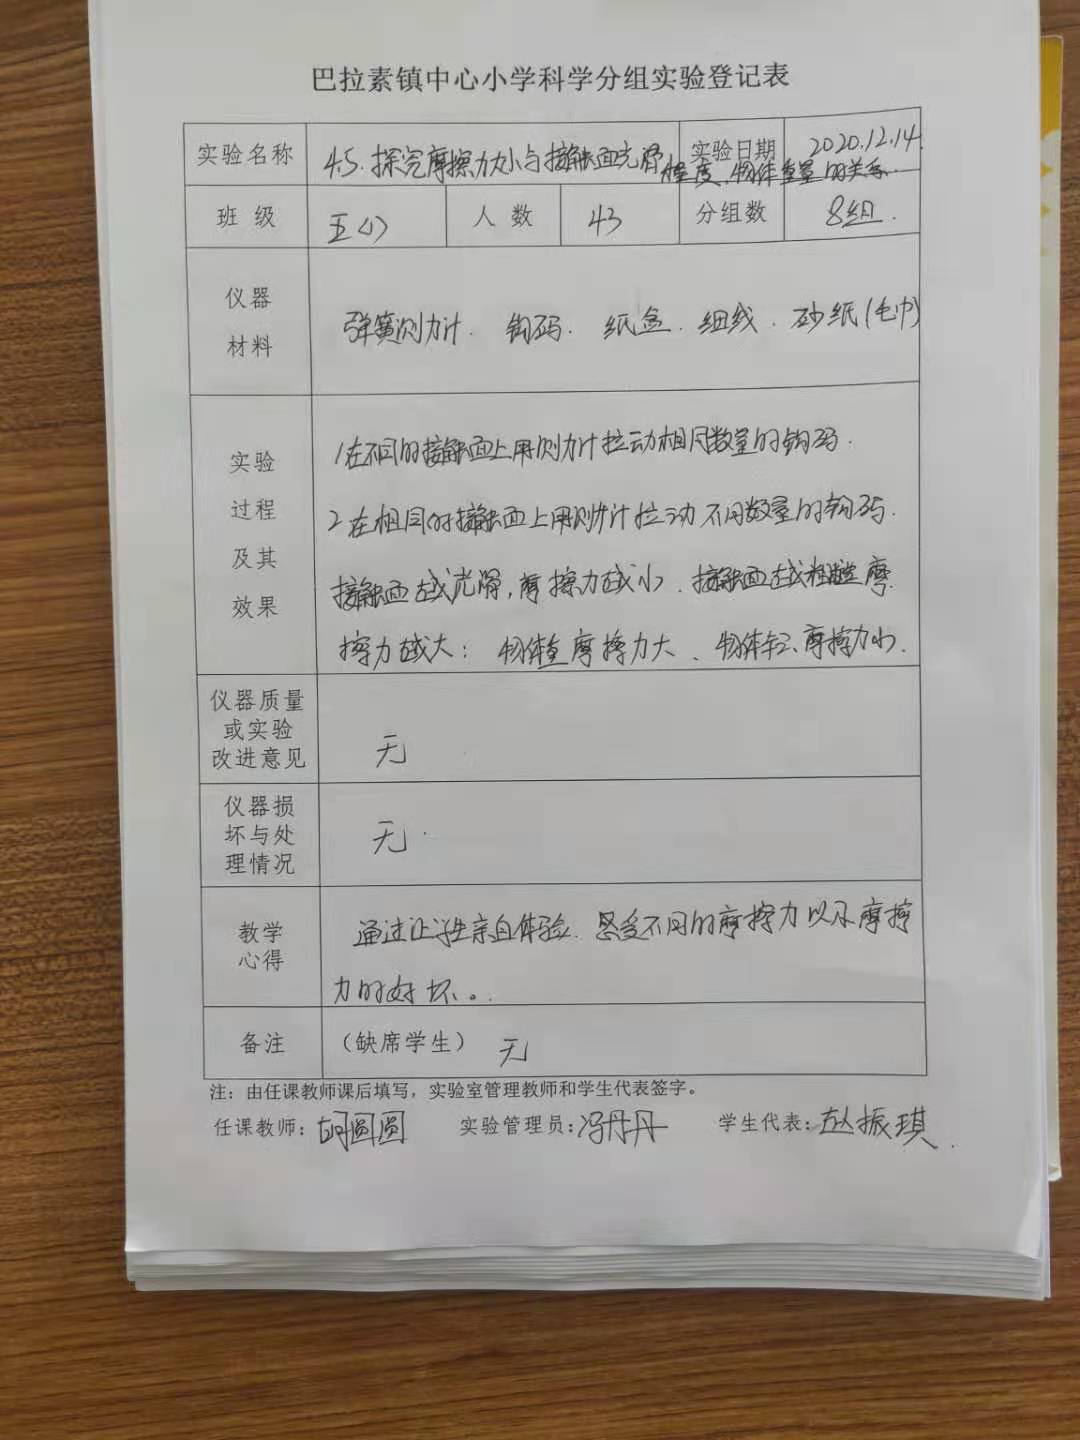 巴拉素镇中心小学科学分组实验登记表
实验名称 45.探究摩擦力大小与接触面光滑程度、物体重量的关系. 实验日期 2020.12.14
班 级 五(1) 人 数 43 分组数 8组.
仪器
材料
弹簧测力计. 钩码. 纸盒. 细线. 砂纸(毛巾)
实验
过程
及其
效果
1在不同的接触面上用测力计拉动相同数量的钩码.
2在相同的接触面上用测力计拉动不同数量的钩码.
接触面越光滑,摩擦力越小.接触面越粗糙摩
擦力越大; 物体重摩擦力大、物体轻、摩擦力小.
仪器质量
或实验
改进意见
无
仪器损
坏与处
理情况
无.
教学
心得
通过让学生亲自体验.感受不同的摩擦力以及摩擦
力的好坏。
备注 (缺席学生) 无
注:由任课教师课后填写,实验室管理教师和学生代表签字。
任课教师:胡圆圆 实验管理员:冯丹丹 学生代表:赵振琪.